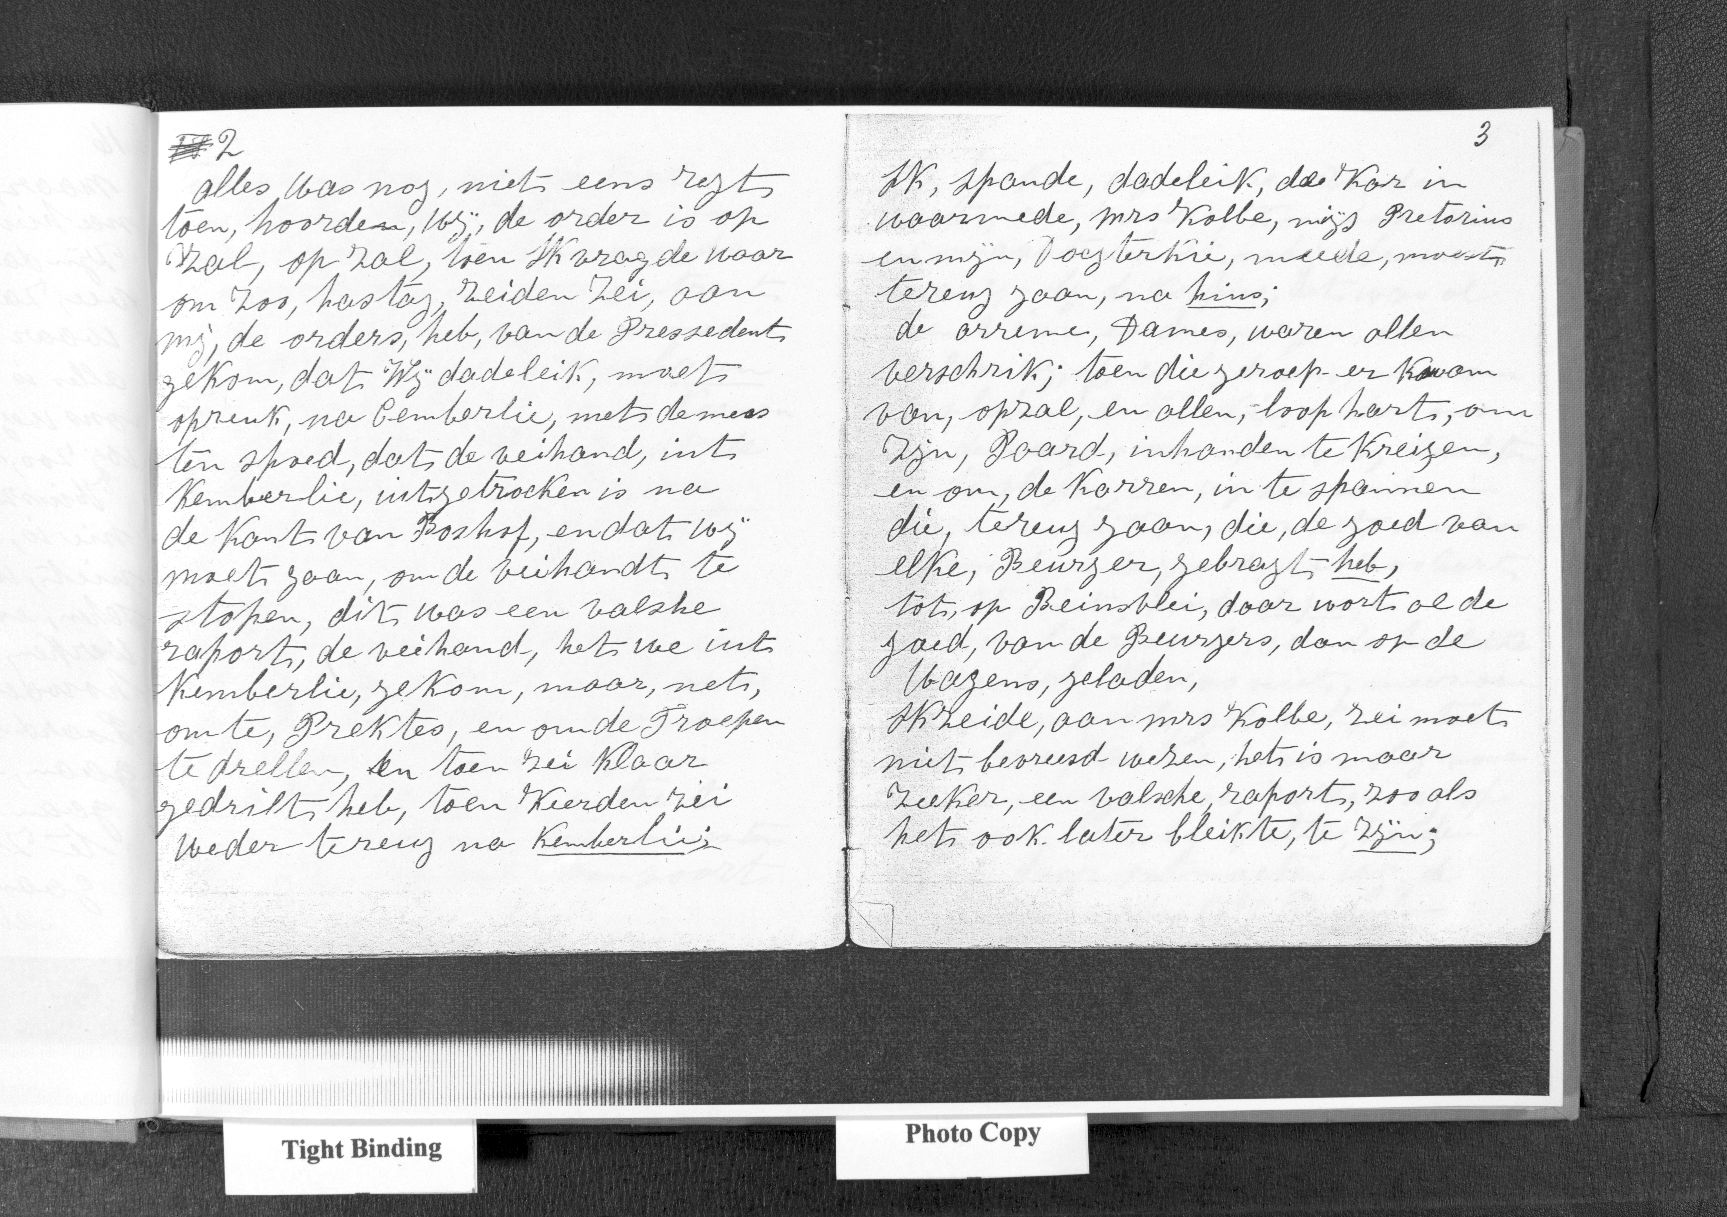 2
alles, was nog, niet eens regt
toen, hoorden, wij, de order is op
Zal, op zal, toen Ik vragde waar
om zoo, hastag, zeiden zei, aan
mij, de orders, heb, van de Pressedent
gekom, dat Wij dadeleik, moet
opreuk, na Cemberlie, met de mees
ten spoed, dat de veihand, uit
Kemberlie, uitgetrocken is na
de Kant van Boshof, en dat wij
moet gaan, om de veihandt te
stopen, dit was een valshe
raport, de veihand, het we uit
Kemberlie, gekom, maar, net,
om te, Prektes, en om de Troepen
te drellen, en toen zei Klaar
gedrilt heb, toen Keerden zei
weder tereug na Kemberlie;
3
Ik, spande, dadeleik, de Kar in
waarmede, mrs Kolbe, mijs Pretorius
en mijn, Dogterkie, meede, moest
tereug gaan, na hius;
de arreme, Dames, waren allen
verschrik; toen die geroep er Kwam
van, opzal, en allen, loop hart, om
Zijn, Paard, inhanden te Kreigen,
en om, de Karren, in te spannen
die, tereug gaan, die, de goed van
elke, Beurger, gebragt heb,
tot, op Beinsvlei, daar wort al de
goed, van de Beurgers, dan op de
Wagens, geladen,
Ik Zeide, aan mrs Kolbe, zei moet
niet bevreesd wezen, het is maar
Zeeker, een valsche, raport, zoo als
het ook later bleikte, te Zijn;
Tight Binding
Photo Copy